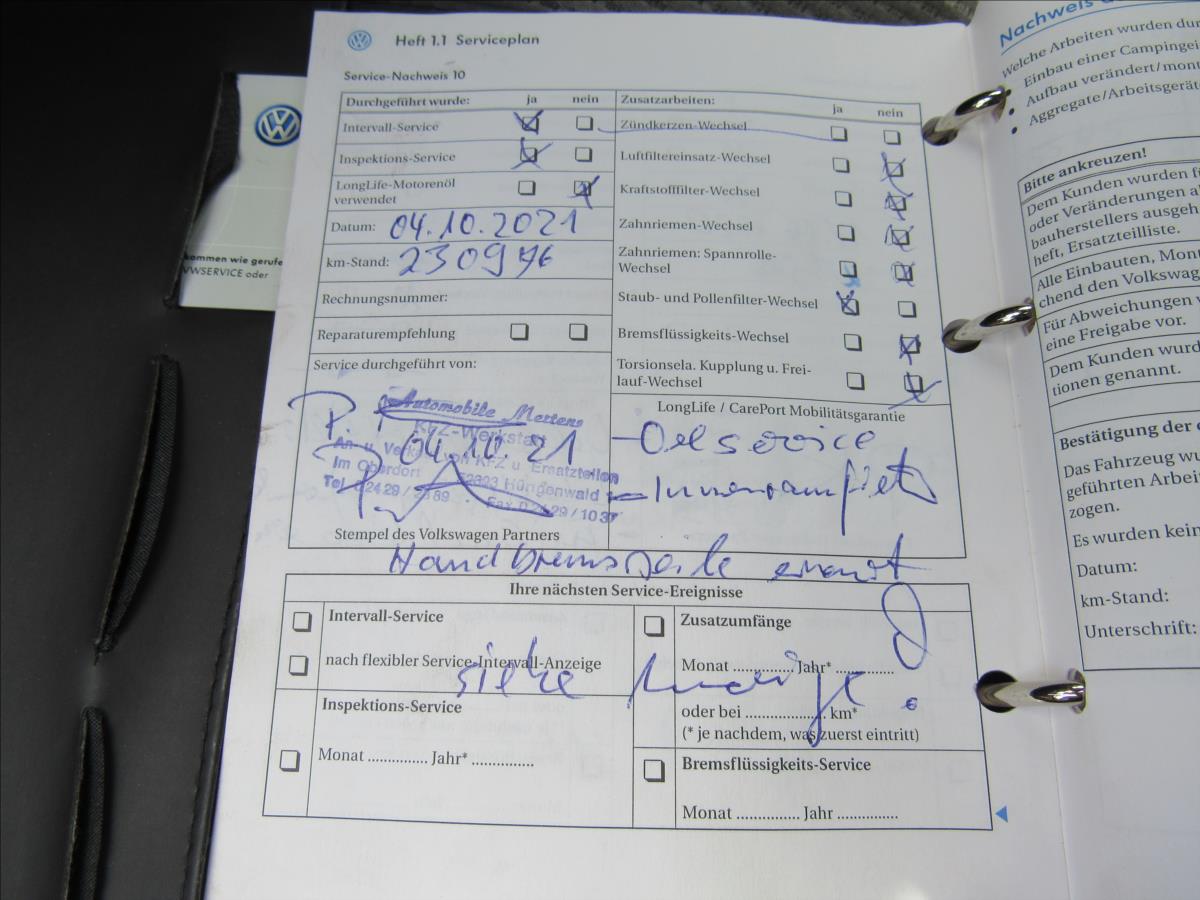 Heft 1.1 Serviceplan
Service-Nachweis 10
Durchgeführt wurde: ja nein
Intervall-Service
Inspektions-Service
LongLife-Motorenöl
verwendet
Datum: 04.10.2021
km-Stand: 230976
Rechnungsnummer:
Reparaturempfehlung
Service durchgeführt von:
Automobile Mertens
KFZ-Werkstatt
04.10.21
An- u. Verkauf von KFZ u. Ersatzteilen
Im Oberdorf 52393 Hürtgenwald
Tel. 02429/2189
Fax 02429/1037
Stempel des Volkswagen Partners
Zusatzarbeiten: ja nein
Zündkerzen-Wechsel
Luftfiltereinsatz-Wechsel
Kraftstofffilter-Wechsel
Zahnriemen-Wechsel
Zahnriemen: Spannrolle-
Wechsel
Staub- und Pollenfilter-Wechsel
Bremsflüssigkeits-Wechsel
Torsionsela. Kupplung u. Frei-
lauf-Wechsel
LongLife / CarePort Mobilitätsgarantie
- Oelservice
-
Handbremsseile
Ihre nächsten Service-Ereignisse
Intervall-Service
nach flexibler Service-Intervall-Anzeige
siehe Anzeige!
Inspektions-Service
Monat ............... Jahr* ...............
Zusatzumfänge
Monat ............... Jahr* ...............
oder bei .................... km*
(* je nachdem, was zuerst eintritt)
Bremsflüssigkeits-Service
Monat ............... Jahr ...............
kommen wie gerufe
VWSERVICE oder
Nachweis
Welche Arbeiten wurden dur
• Einbau einer Campingei
• Aufbau verändert/mont
• Aggregate/Arbeitsgeräte
Bitte ankreuzen!
Dem Kunden wurden f
oder Veränderungen a
bauherstellers ausgeh
heft, Ersatzteilliste.
Alle Einbauten, Mont
chend den Volkswage
Für Abweichungen v
eine Freigabe vor.
Dem Kunden wurd
tionen genannt.
Bestätigung der
Das Fahrzeug wu
geführten Arbei
zogen.
Es wurden kein
Datum:
km-Stand:
Unterschrift: